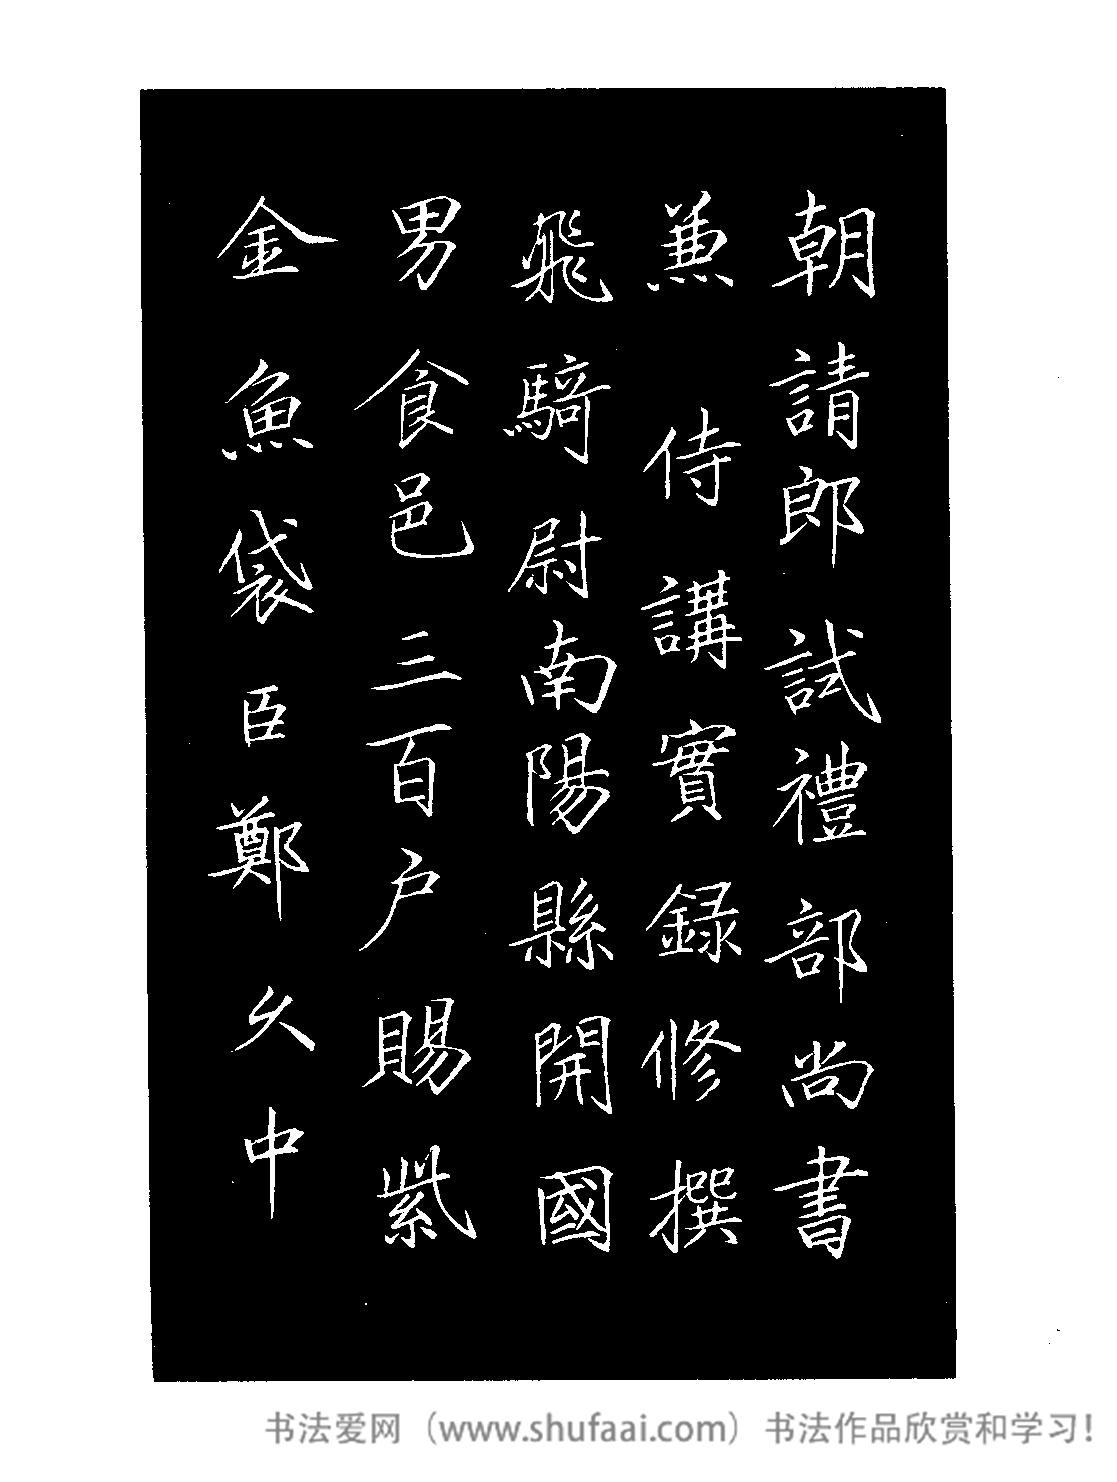 朝請郎試禮部尚書
兼侍講實録修撰
飛騎尉南陽縣開國
男食邑三百户賜紫
金魚袋臣鄭久中
书法爱网（www.shufaai.com）书法作品欣赏和学习!